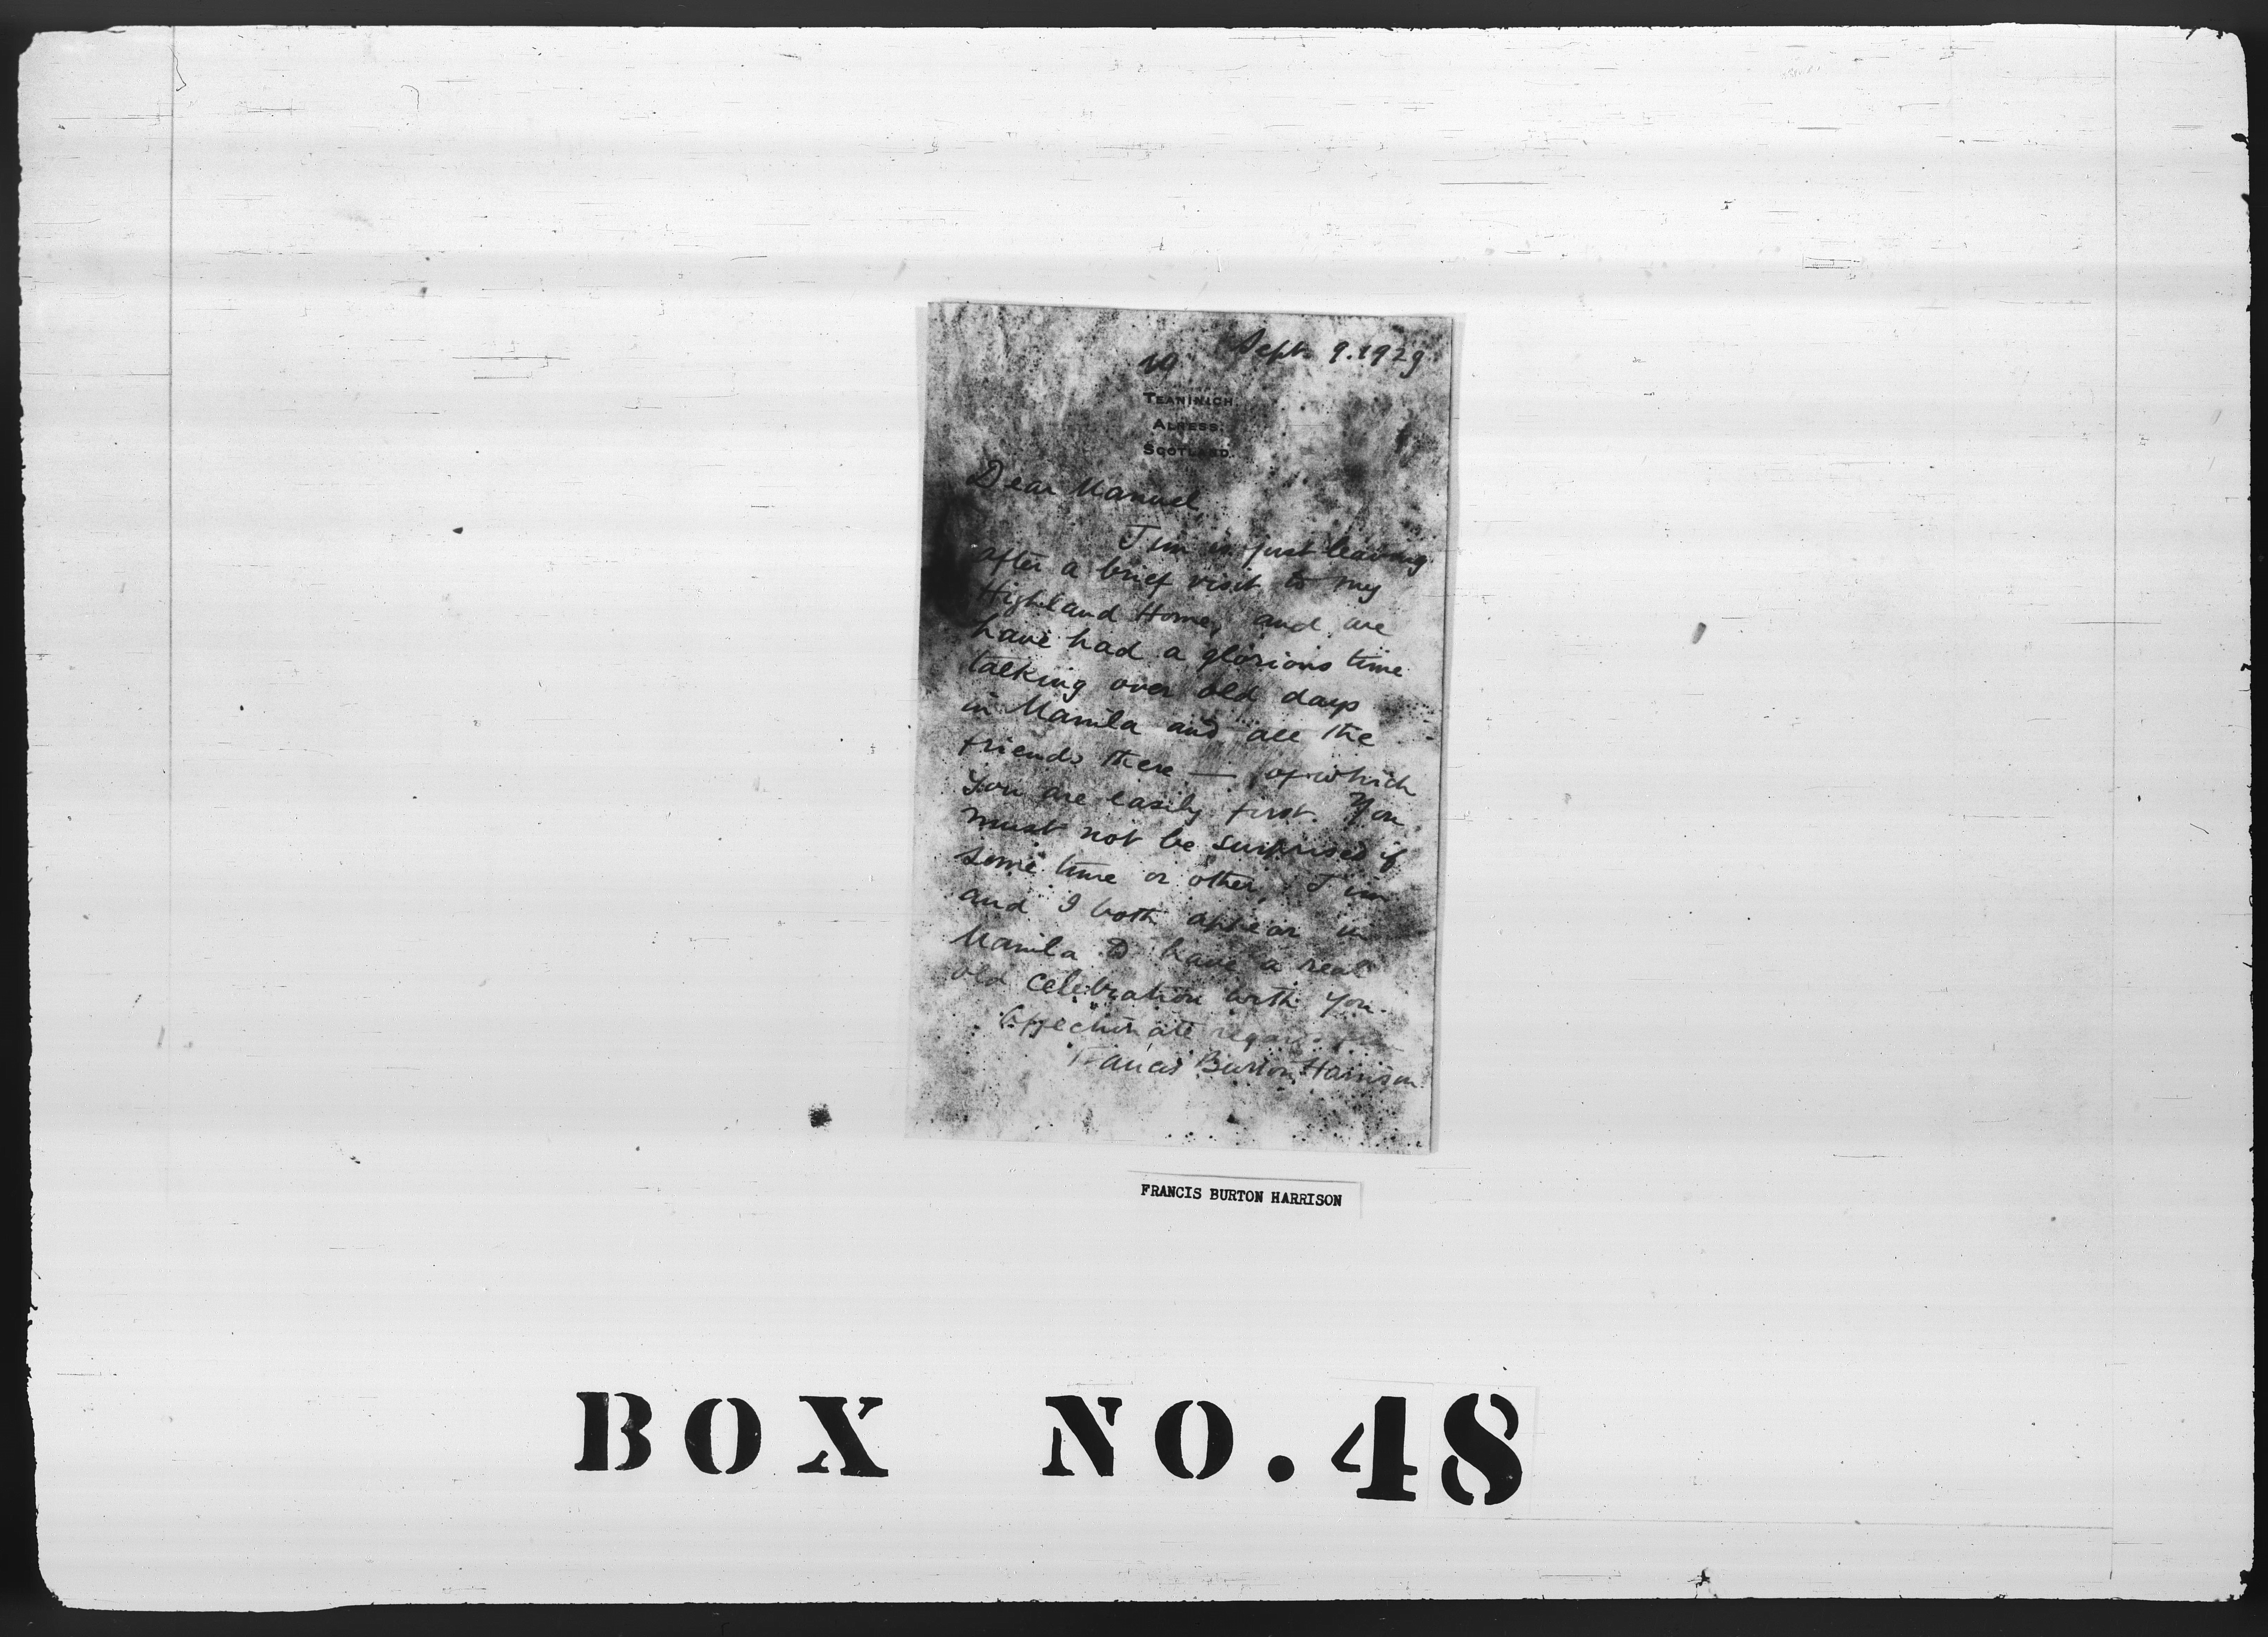 Sept. 9. 1929
TEANINICH,
ALNESS,
SCOTLAND.
Dear Manuel,
Jim is just leaving
after a brief visit to my
Highland Home, and we
have had a glorious time
talking over old days
in Manila and all the
friends there — of which
you are easily first. You
must not be surprised if
some time or other, Jim
and I both appear in
Manila to have a real
old celebration with you.
Affectionate regards from
Francis Burton Harrison
FRANCIS BURTON HARRISON
BOX NO. 48